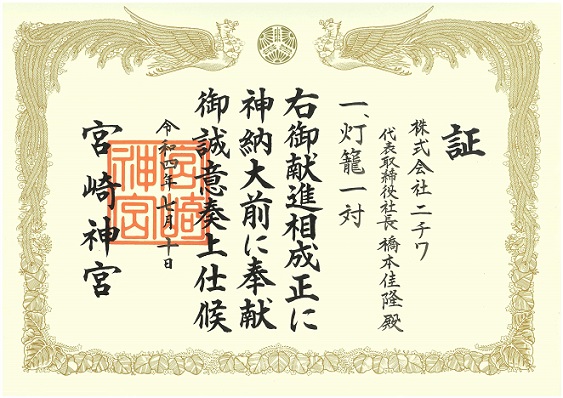 証
株式会社ニチワ
代表取締役社長 橋本佳隆殿
一、灯籠一対
右御献進相成正に
神納大前に奉献
御誠意奏上仕候
令和四年七月十日
宮崎神宮
宮崎
神宮